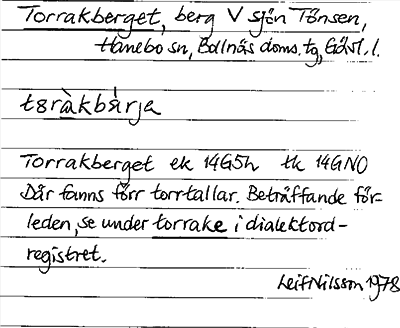 Torrakberget, berg V sjön Tönsen,
Hanebo sn, Bollnäs doms. tg, Gävl. l.
tɞràkbä̀rja
Torrakberget ek 14G5h tk 14GNO
Där fanns förr torrtallar. Beträffande för-
leden, se under torrake i dialektord-
registret.
Leif Nilsson 1978